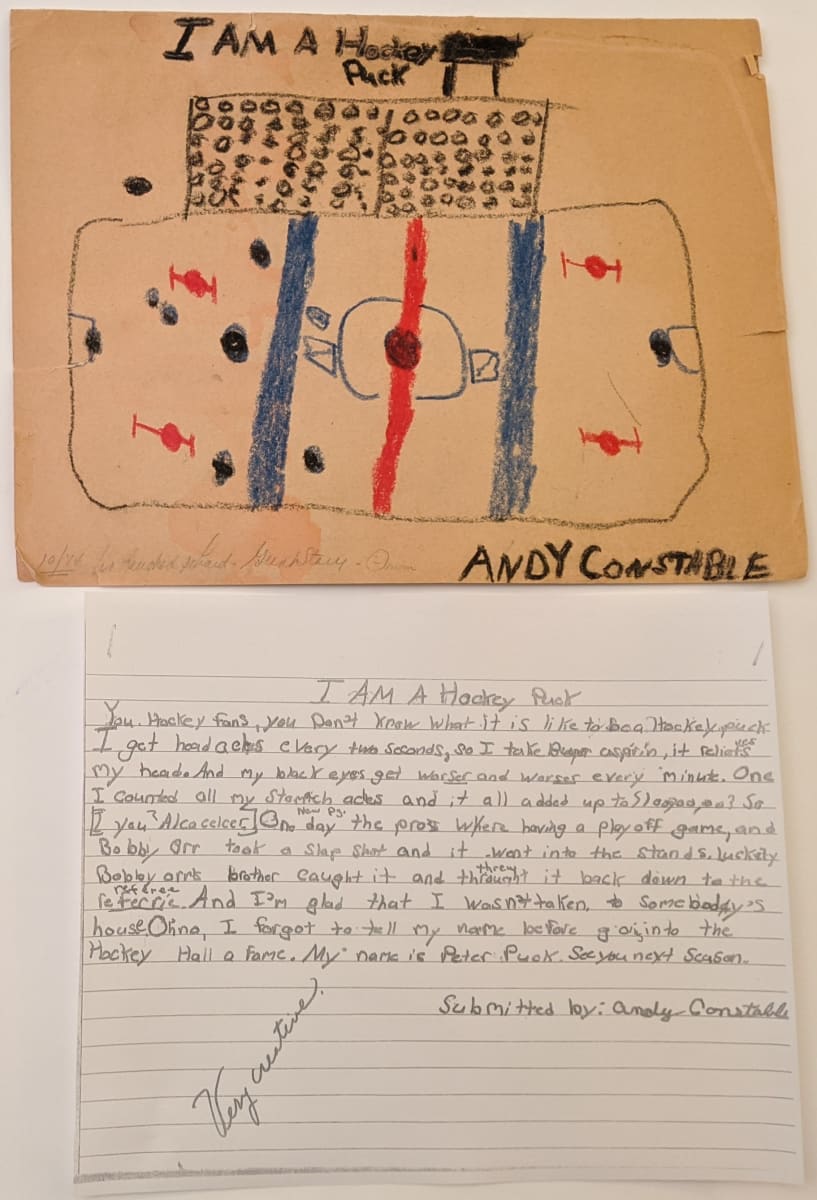 I AM A Hockey
Puck
10/74
ANDY CONSTABLE
I AM A Hockey Puck
You. Hockey fans, you Don't know what it is like to be a Hockey puck
I get headaches every two seconds, so I take aspirin, it relieves
my head. And my black eyes get worser and worser every minute. One
I counted all my Stomach aches and it all added up to So
I you Alcacelcer One day the pros where having a playoff game, and
Now Pg.
Bobby Orr took a Slap Shot and it went into the stands. luckily
Bobby orrs brother caught it and it back down to the
threw
referee
referrie. And I'm glad that I wasn't taken, to somebody's
house. Ohno, I forgot to tell my name before goin into the
Hockey Hall a Fame. My name is Peter Puck. See you next Season.
Submitted by: andy Constable
Very creative!